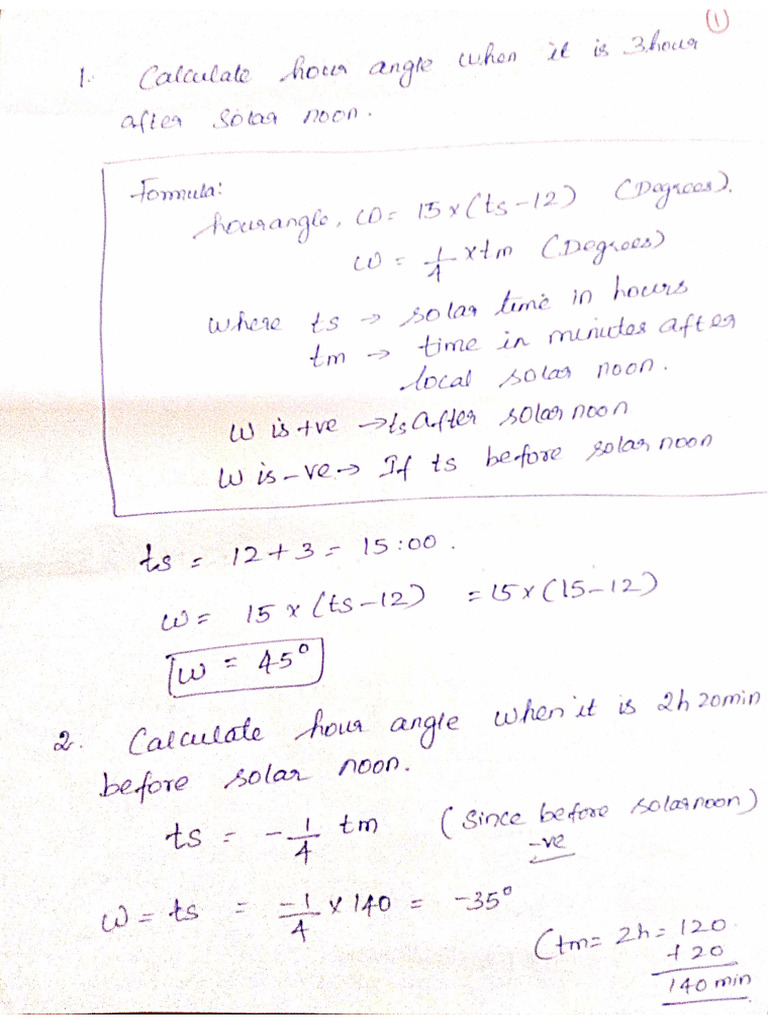 ①
1. Calculate hour angle when it is 3 hour
after solar noon.
Formula:
hour angle, ω = 15 × (ts - 12) (Degrees).
ω = 1/4 × tm (Degrees)
where ts → solar time in hours
tm → time in minutes after
local solar noon.
ω is +ve → ts After solar noon
ω is -ve → If ts before solar noon
ts = 12 + 3 = 15:00.
ω = 15 × (ts - 12) = 15 × (15 - 12)
ω = 45°
2. Calculate hour angle when it is 2h 20min
before solar noon.
ts = -1/4 tm (Since before solar noon)
-ve
ω = ts = -1/4 × 140 = -35°
(tm = 2h = 120
+ 20
140 min